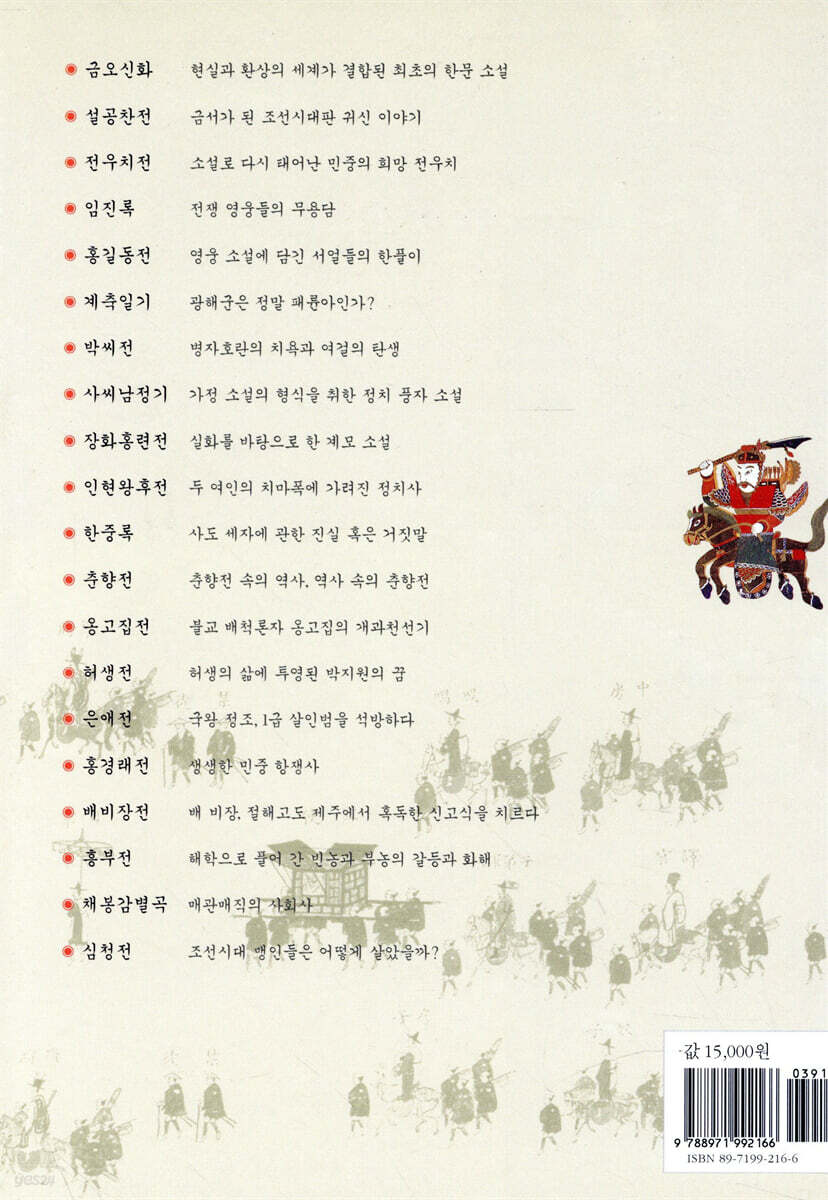 금오신화 현실과 환상의 세계가 결합된 최초의 한문 소설
설공찬전 금서가 된 조선시대판 귀신 이야기
전우치전 소설로 다시 태어난 민중의 희망 전우치
임진록 전쟁 영웅들의 무용담
홍길동전 영웅 소설에 담긴 서얼들의 한풀이
계축일기 광해군은 정말 패륜아인가?
박씨전 병자호란의 치욕과 여걸의 탄생
사씨남정기 가정 소설의 형식을 취한 정치 풍자 소설
장화홍련전 실화를 바탕으로 한 계모 소설
인현왕후전 두 여인의 치마폭에 가려진 정치사
한중록 사도 세자에 관한 진실 혹은 거짓말
춘향전 춘향전 속의 역사, 역사 속의 춘향전
옹고집전 불교 배척론자 옹고집의 개과천선기
허생전 허생의 삶에 투영된 박지원의 꿈
은애전 국왕 정조, 1급 살인범을 석방하다
홍경래전 생생한 민중 항쟁사
배비장전 배 비장, 절해고도 제주에서 혹독한 신고식을 치르다
흥부전 해학으로 풀어 간 빈농과 부농의 갈등과 화해
채봉감별곡 매관매직의 사회사
심청전 조선시대 맹인들은 어떻게 살았을까?
값 15,000원
0391
9 788971 992166
ISBN 89-7199-216-6
yes24